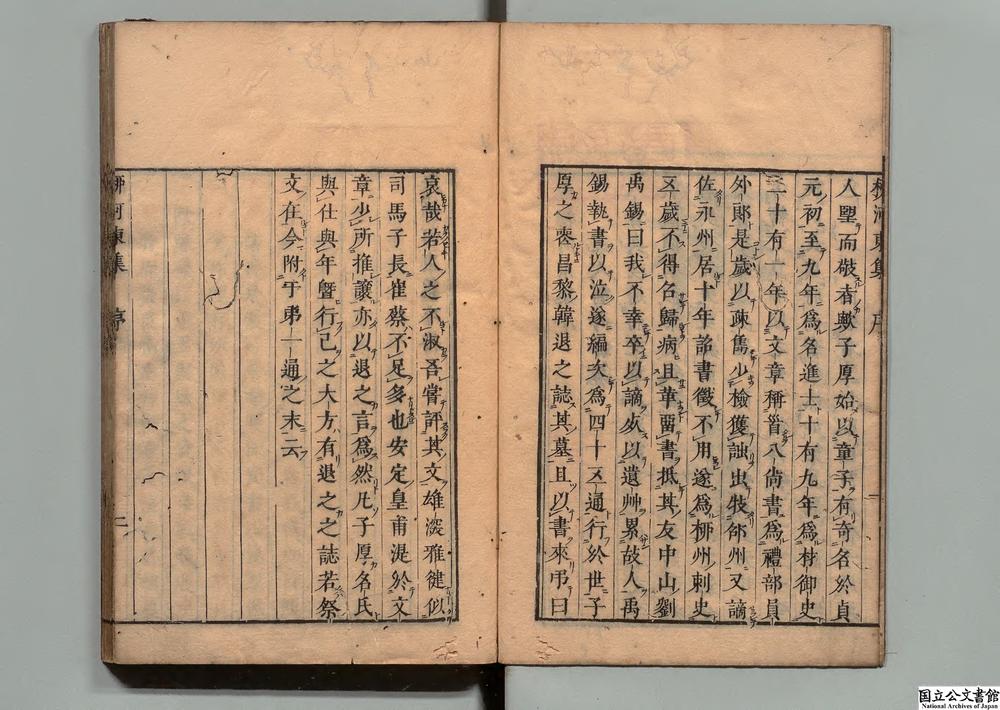 人望而敬者歟子厚始以童子有奇名於貞
元初至九年爲名進士十有九年爲材御史
二十有一年以文章稱首入尚書爲禮部員
外郎是歲以疎雋少檢獲訕出牧邵州又謫
佐永州居十年詔書徵不用遂爲柳州刺史
五歲不得召歸病且革留書抵其友中山劉
禹錫曰我不幸卒以謫死以遺艸累故人禹
錫執書以泣遂編次爲四十五通行於世子
厚之喪昌黎韓退之誌其墓且以書來弔曰
柳河東集 序
哀哉若人之不淑吾嘗評其文雄深雅健似
司馬子長崔蔡不足多也安定皇甫湜於文
章少所推讓亦以退之言爲然凡子厚名氏
與仕與年曁行己之大方有退之之誌若祭
文在今附于第一通之末云
柳河東集 序 二
国立公文書館
National Archives of Japan